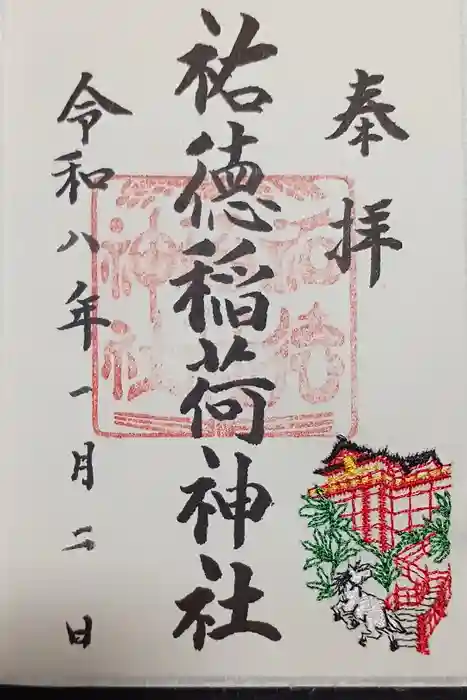 奉拝
祐徳稲荷神社
令和八年一月二日